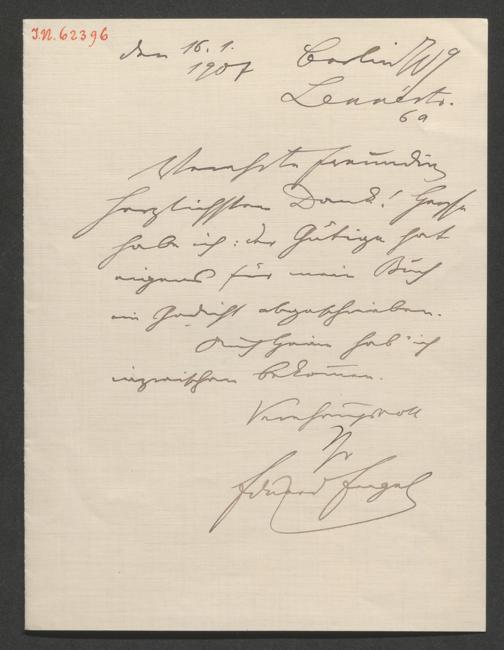 I.N. 62396
den 16. 1. 1907
Berlin W9
Lennéstr. 6a
Verehrte Freundin
herzlichsten Dank!
habe ich: der Gütige hat
eigens für mein Buch
ein Gedicht abgeschrieben.
Auch hab' ich
inzwischen bekommen.
Verehrungsvoll
Ihr
Eduard Engel